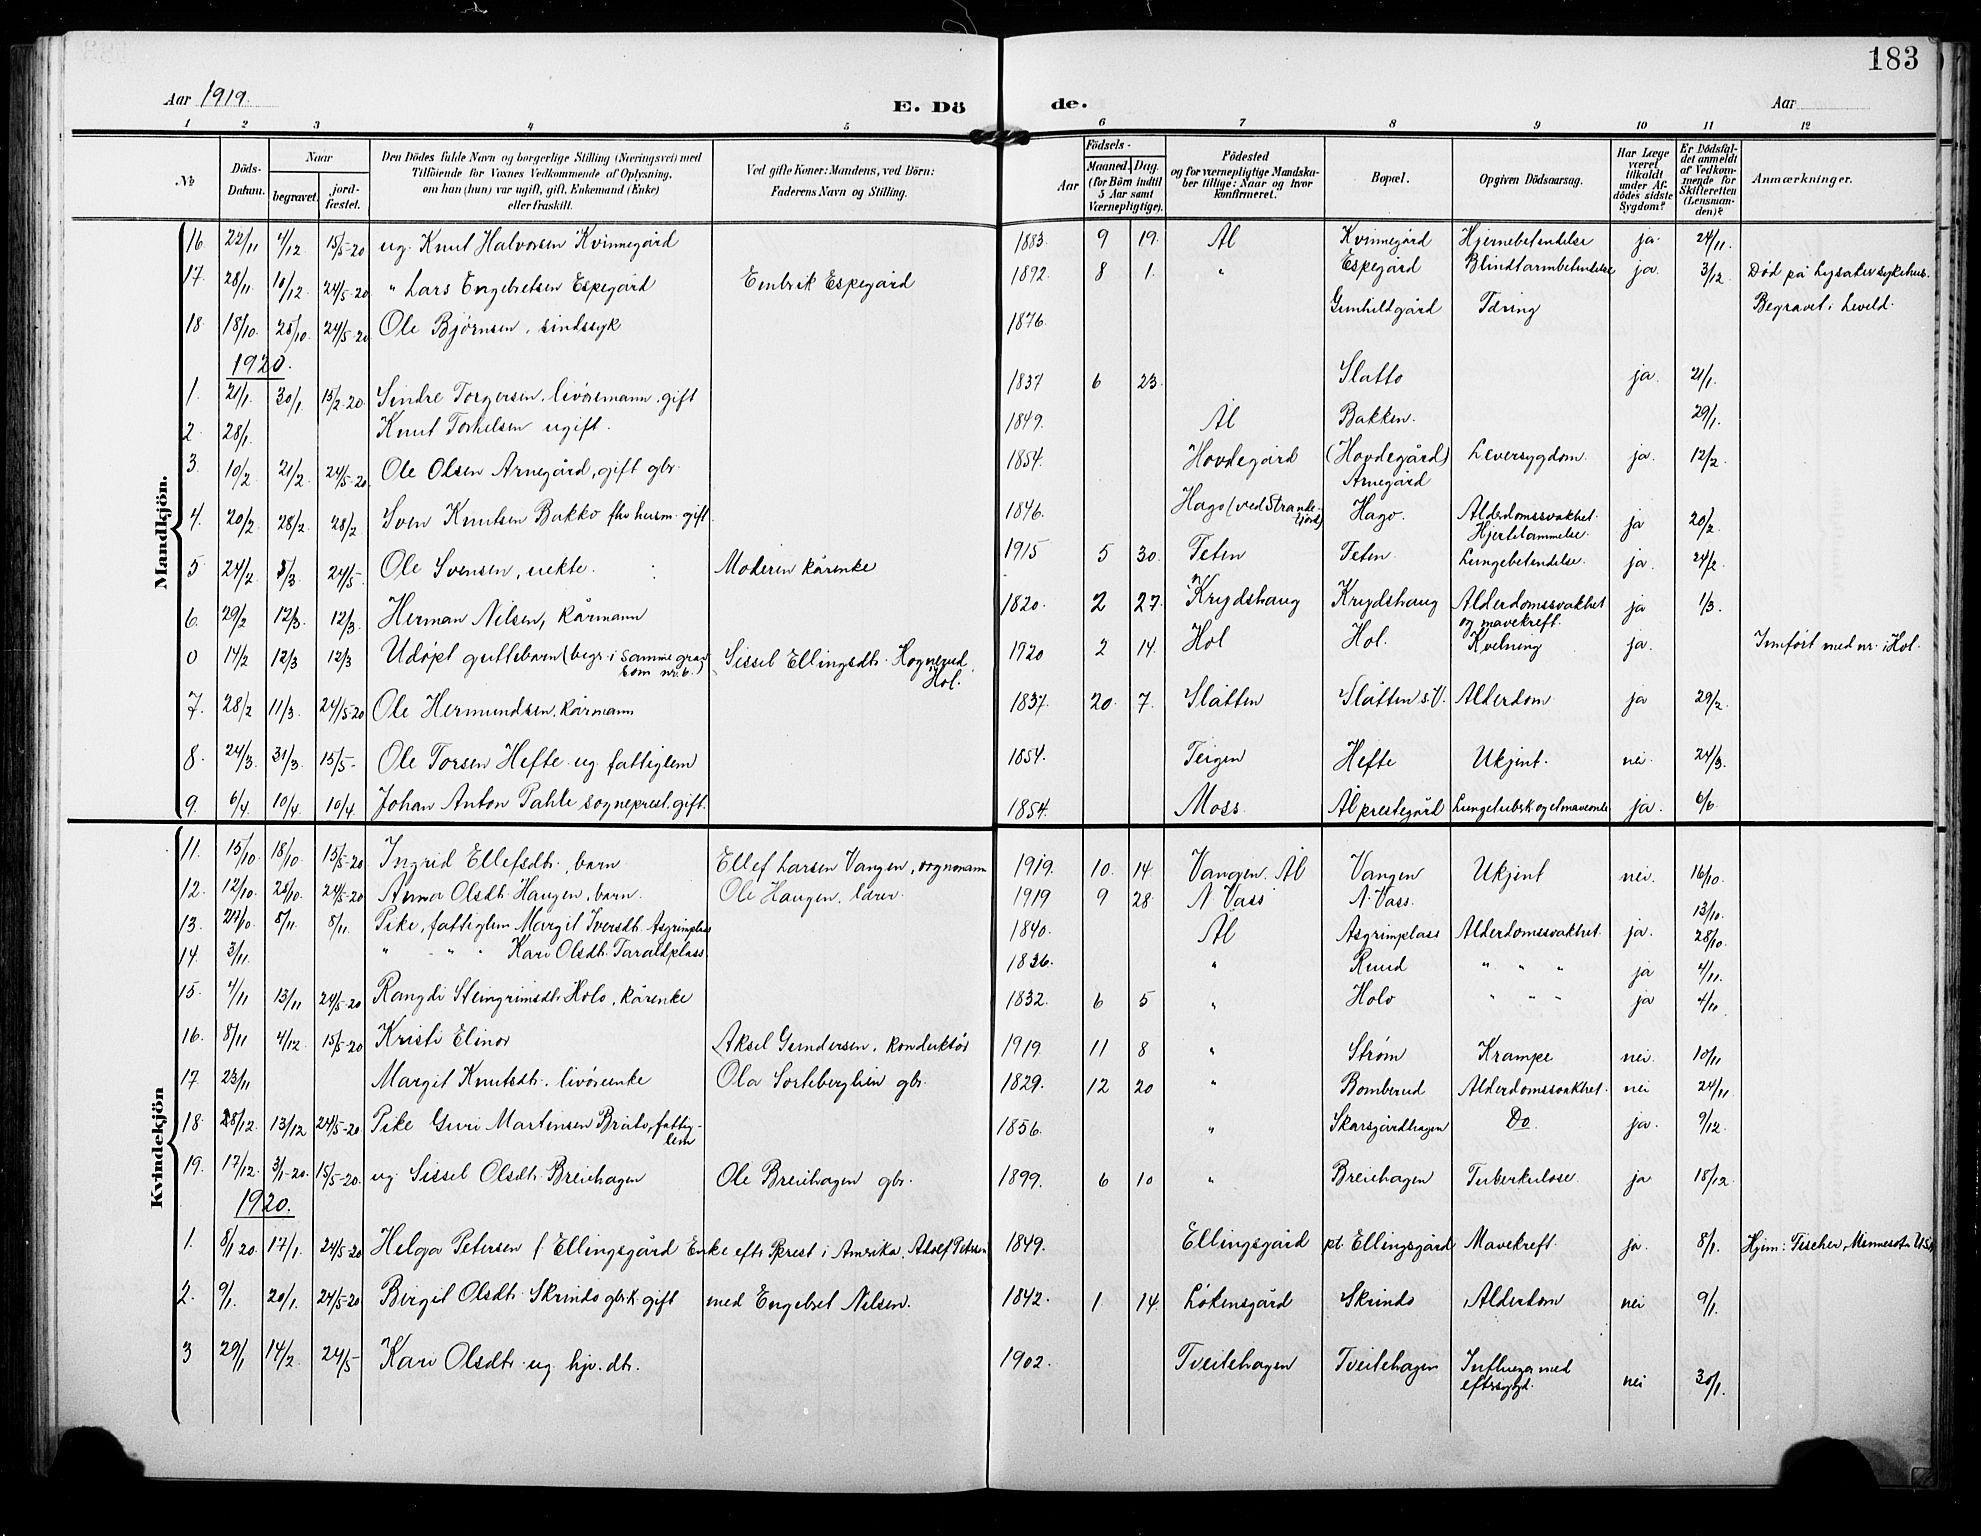 183
Aar 1919. E. Dö de. Aar
1 2 3 4 5 6 7 8 9 10 11 12
No Döds-Datum. Naar begravet. jordfæstet. Den Dödes fulde Navn og borgerlige Stilling (Næringsvei) med Tilföiende for Voxnes Vedkommende af Oplysning, om han (hun) var ugift, gift, Enkemand (Enke) eller fraskilt. Ved gifte Koner: Mandens, ved Börn: Faderens Navn og Stilling. Födsels- Aar Maaned. Dag. (for Börn indtil 5 Aar samt Værnepligtige). Födested og for værnepligtige Mandskaber tillige: Naar og hvor konfirmeret. Bopæl. Opgiven Dödsaarsag. Har Læge været tilkaldt under Afdödes sidste Sygdom? Er Dödsfaldet anmeldt af Vedkommende for Skifteretten (Lensmanden)? Anmærkninger.
Mandkjön.
16. 22/11 4/12 15/5-20 ug. Knut Halvorsen Kvinnegård 1883. 9 19. Ål Kvinnegård Hjernebetendelse ja. 24/11.
17. 28/11. 10/12. 24/5-20 " Lars Engebretsen Espegård Embrik Espegård 1892. 8 1. " Espegård Blindtarmbetendelse ja. 3/12. Død på Lysaker sykehus. Begravet i Leveld.
18. 18/10. 25/10. 24/5-20 Ole Bjørnsen, sindssyk 1876. Gunhildgård Tæring
1920.
1. 21/1. 30/1. 13/2-20 Sindre Torgersen, livøremann, gift 1837 6 23. Slatto ja. 21/1.
2. 28/1. Knut Torkelsen ugift. 1849. Ål Bakken. 29/1.
3. 10/2 21/2. 24/5-20. Ole Olsen Arnegård, gift gbr. 1854. Hovdegård (Hovdegård) Arnegård Leversygdom. ja. 12/2
4. 20/2 28/2. 28/2 Sven Knutsen Bakko fhv husm. gift. 1846. Hago (ved Strandefjord) Hago. Alderdomssvakhet. Hjertelammelse. ja 20/2.
5 24/2 8/3 24/5. Ole Svensen, uekte. Moderen kårenke 1915 5 30. Teten Teten. Lungebetendelse. ja. 24/2.
6. 29/2 12/3. 12/3. Herman Nilsen, kårmann 1820. 2 27. Krydshaug Krydshaug Alderdomssvakhet og mavekreft. ja 1/3.
0 14/2 12/3 12/3 Udøpt guttebarn (begr. i samme grav som nr. 6.) Sissel Ellingsdtr. Hognerud Hol. 1920 2 14. Hol Hol. Kvelning ja. Innført med nr. i Hol.
7. 28/2 11/3. 24/5-20 Ole Hermundsen, kårmann 1837. 20. 7. Slåtten Slåtten s.V. Alderdom ja 29/2.
8. 24/3. 31/3. 15/5- Ole Torsen Hefte ug fattiglem 1854. Teigen Hefte Ukjent. nei. 24/3.
9. 6/4 10/4 10/4 Johan Anton Pahle sogneprest, gift. 1854. Moss. Ål prestegård ja. 6/6
Kvindekjön
11. 15/10. 18/10. 15/5-20 Ingrid Ellefsdtr., barn Ellef Larsen Vangen, vognmann 1919. 10. 14. Vangen, Ål Vangen Ukjent nei. 16/10.
12. 12/10. 25/10. 24/5-20 Anna Olsdtr. Haugen, barn. Ole Haugen, lærer. 1919 9 28. N. Vass N. Vass. 13/10.
13. 27/10 8/11. 8/11. Pike, fattiglem Margit Iversdtr. Asgrimplass 1840. Ål Asgrimplass Alderdomssvakhet. ja. 28/10.
14. 3/11. " " " Kari Olsdtr. Taraldplass. 1836. " Ruud " " " ja 4/11.
15. 4/11 13/11 24/5-20 Rangdi Steingrimsdtr. Holo, kårenke 1832. 6 5 " Holo " " " ja 4/11
16. 8/11 4/12. 15/5-20 Kristi Elinor Aksel Gundersen, konduktør 1919. 11 8 " Strøm Krampe nei. 10/11
17 23/11 Margit Knutsdtr. livøreenke Ola Sorteberglien gbr. 1829. 12 20 " Bomberud Alderdomssvakhet. nei 24/11
18. 28/12. 13/12 24/5-20 Pike Guri Martinsen Bråto, fattiglem 1856. " Skarsgårdhagen Do. ja. 9/12.
19. 17/12. 3/1-20. 15/5-20. ug Sissel Olsdtr. Breiehagen Ole Breiehagen gbr. 1899. 6 10 " Breiehagen Tuberkulose. ja 18/12.
1920.
1. 8/1 20. 17/1. 24/5-20 Helga Petersen f. Ellingsgård Enke eftr. Prest i Amerika, Adolf Petersen 1849. Ellingsgård pt. Ellingsgård Mavekreft. ja. 8/1. Hjem: Fischer, Minnesota USA
2. 9/1. 20/1. 24/5-20 Birgit Olsdtr. Skrindo gbrk. gift med Engebret Nilsen. 1842. 1 14. Løkensgård Skrindo Alderdom nei 9/1.
3 29/1 14/2. 24/5- Kari Olsdtr. ug hjv. dtr. 1902. Tveitehagen Tveitehagen Influenza med eftersygd. nei 30/1.